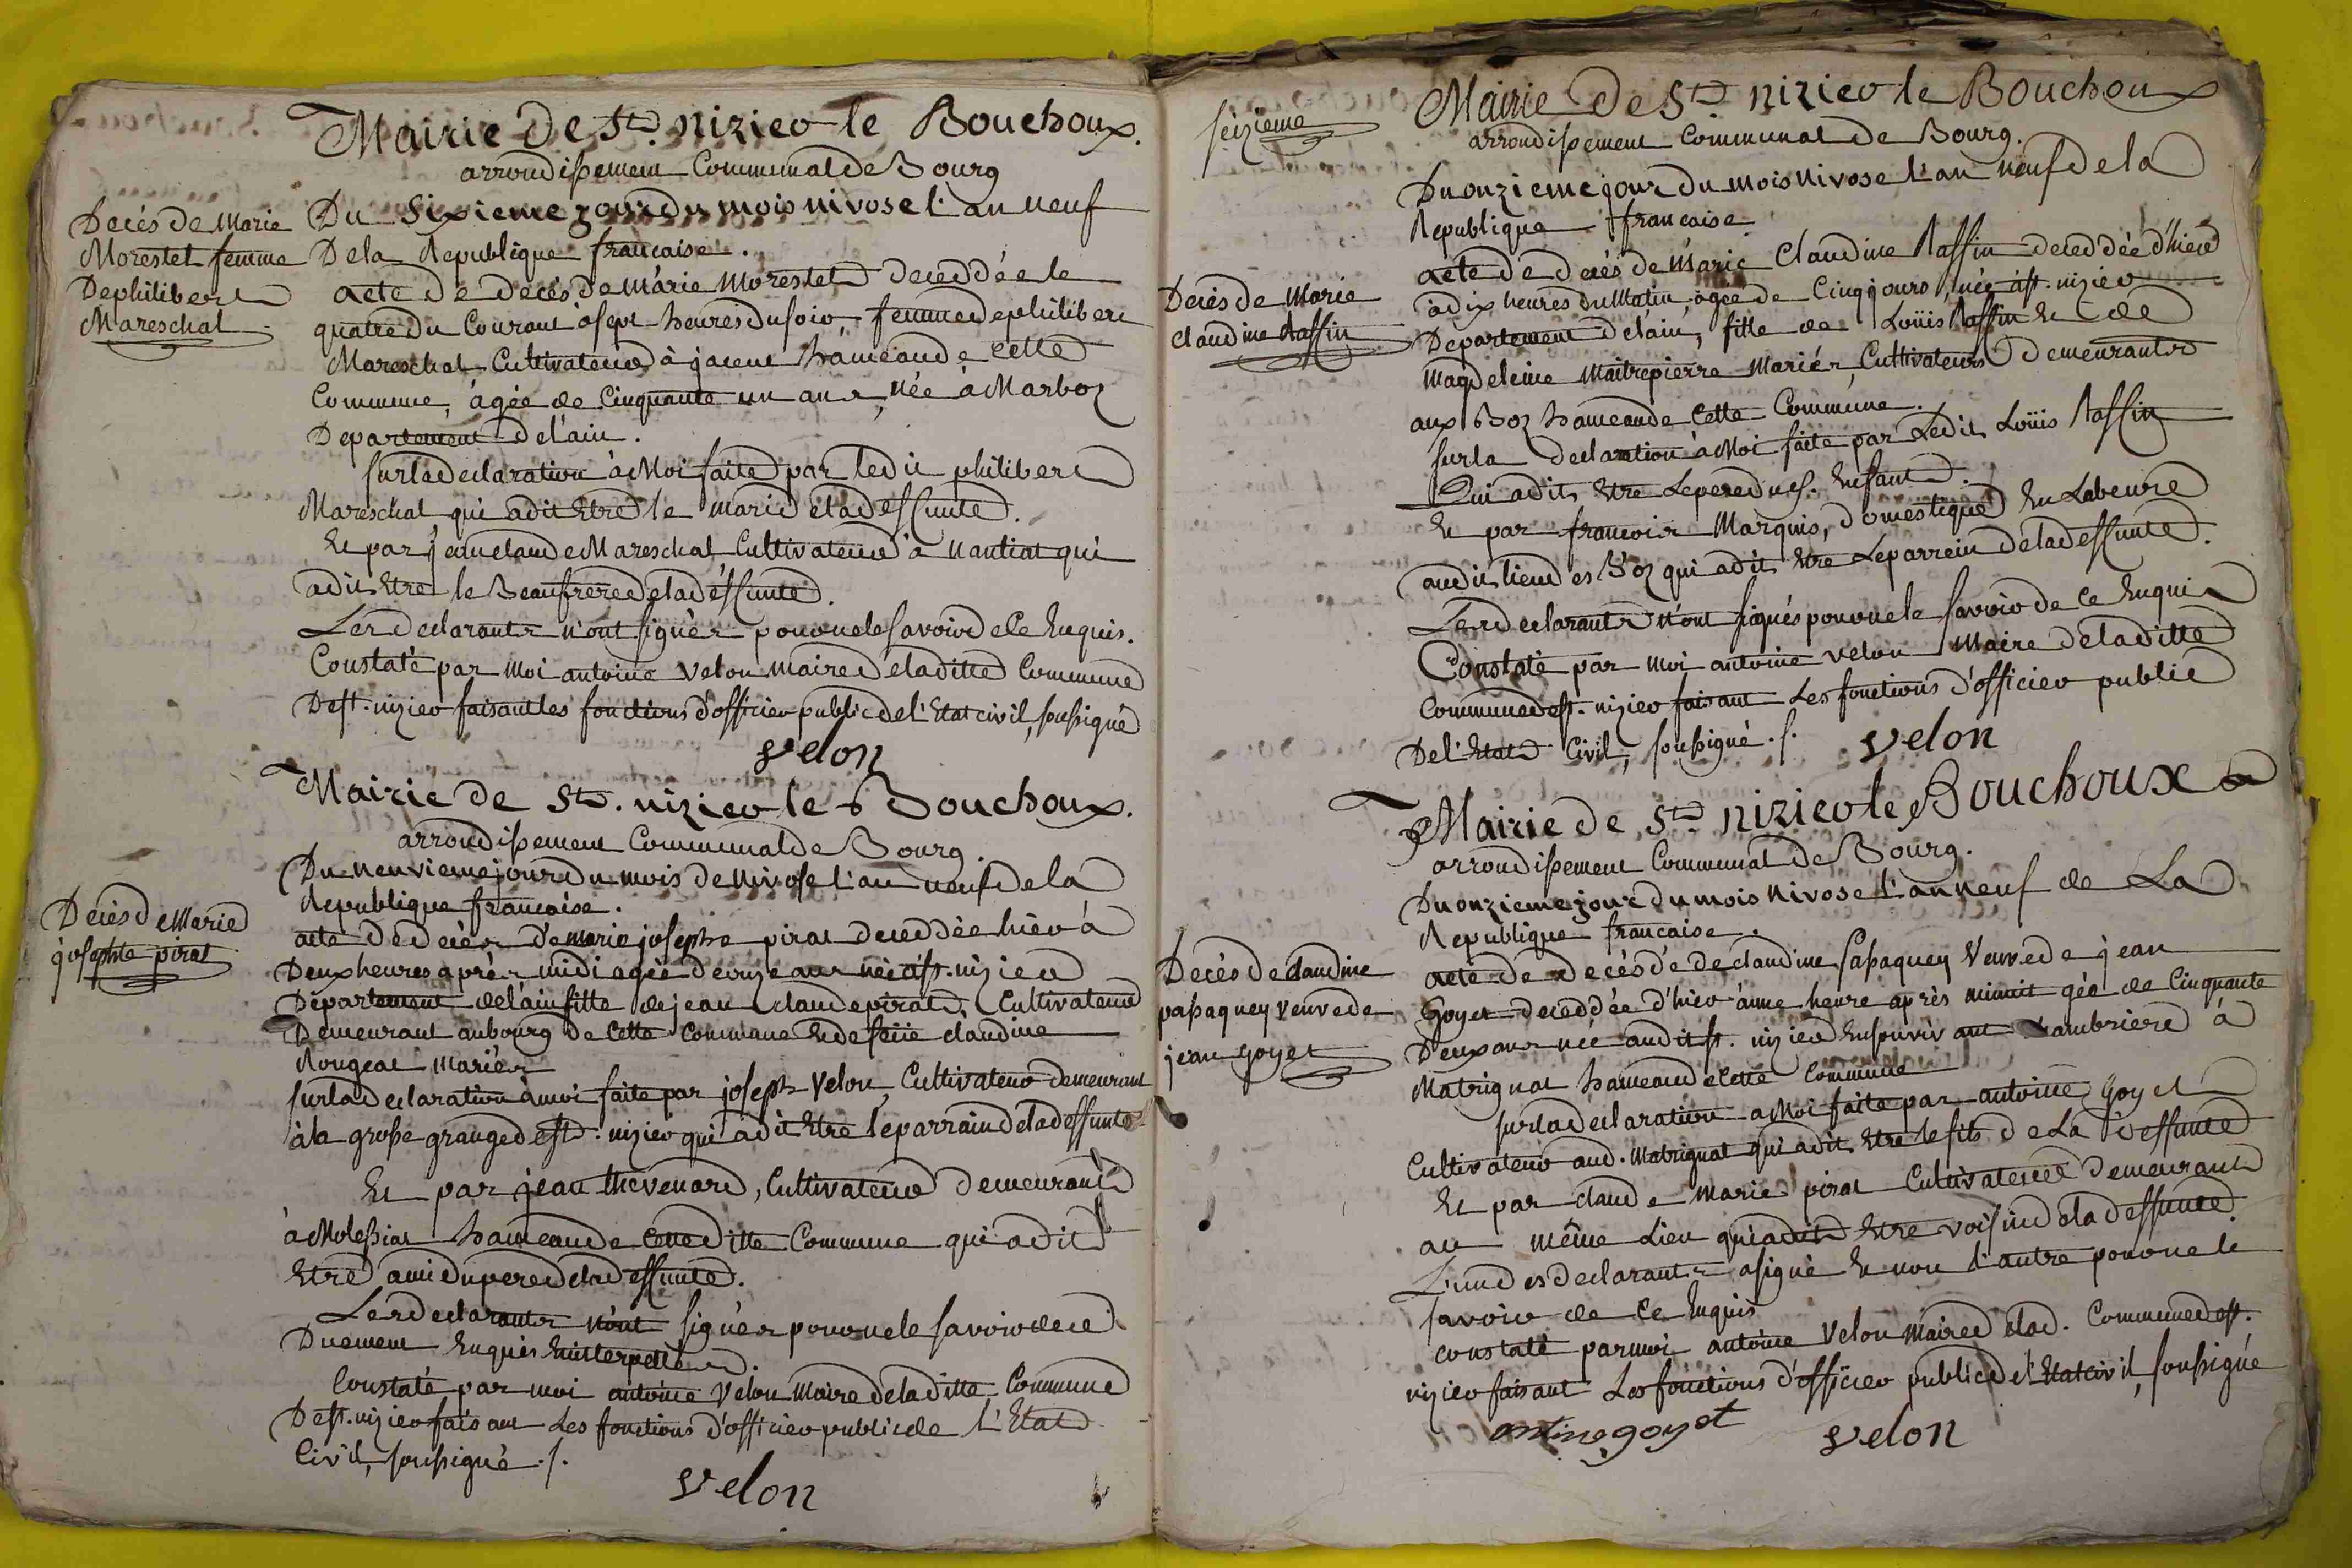 Mairie de St. nizier le Bouchoux.
arrondissement Communal de Bourg
Decès de Marie
Morestel femme
De philibert
Mareschal
Du sixieme jour du mois nivose l'an neuf
De la Republique francaise.
acte de decès de Marie Morestel deceddée le
quatre du Courant a sept heures du soir, femme de philibert
Mareschal Cultivateur à jacent hameau de cette
Commune, àgée de Cinquante un ans, née à Marboz
Departement de l'ain.
sur la declaration à Moi faite par ledit philibert
Mareschal qui a dit Etre le mari de la deffunte.
Et par jean claude Mareschal Cultivateur à nantiat qui
a dit Etre le Beaufrere de la deffunte.
Les declarants n'ont signés pour ne le savoir de ce Enquis.
Constaté par Moi antoine Velon maire de la ditte Commune
De st. nizier faisant les fonctions d'officier public de l'Etat civil, soussigné
velon
Mairie de St. nizier le Bouchoux.
arrondissement Communal de Bourg.
Decès de Marie
josephte pirat
Du neuvieme jour du mois de Nivose l'an neuf de la
Republique francaise.
acte de decès de marie josephte pirat deceddée hier à
Deux heures après midi agée d'onze ans née a st. nizier
Departement de l'ain fille de jean claude pirat, Cultivateur
Demeurant au bourg de Cette Commune Et de feüe claudine
Rougeat Mariés
sur la declaration à moi faite par joseph Velon, Cultivateur demeurant
à la grosse grange de st. nizier qui a dit Etre le parrain de la deffunte
Et par jean thevenard, Cultivateur demeurant
à Molessiat hameau de Cette ditte Commune qui a dit
Etre ami du pere de la deffunte.
Les declarants n'ont signés pour ne le savoir de ce
Duement Enquis Et interpellés.
Constaté par moi antoine Velon Maire de la ditte Commune
De st. nizier faisant Les fonctions d'officier public de L'Etat
Civil, soussigné ./.
velon
seizieme
Mairie de St nizier le Bouchoux
arrondissement Communal de Bourg.
Du onzieme jour du mois Nivose l'an neuf de la
Republique francaise
Decès de Marie
claudine Raffin
acte de decès de Marie Claudine Raffin deceddée d'hier
à dix heures du Matin, agée de Cinq jours, née à st. nizier
Departement de l'ain, fille de Loüis Raffin Et de
Magdeleine Maitrepierre Mariés, Cultivateurs demeurants
aux Boz hameau de Cette Commune.
sur la declaration à Moi faite par Ledit Loüis Raffin
Qui a dit Etre Le pere du s. Enfant.
Et par francois Marquis, domestique En Labeure
au dit lieu des Boz qui a dit Etre Le parrein de la deffunte.
Les declarants n'ont signés pour ne le savoir de ce Enquis
Constaté par Moi antoine Velon Maire de la ditte
Commune de st. nizier faisant Les fonctions d'officier public
De l'Etat Civil, soussigné ./. velon
Mairie de St nizier le Bouchoux
arrondissement Communal de Bourg.
Du onzieme jour du mois Nivose l'an neuf de La
Republique francaise.
Decès de claudine
passaquey veuve de
jean goyet
acte de decès de de claudine passaquey Veuve de jean
Goyet deceddée d'hier à une heure après minuit gée de Cinquante
Deux ans née audit st. nizier En son vivant chambriere à
Matrignat hameau de Cette Commune
sur la declaration a Moi faite par antoine Goyet
Cultivateur aud. Matrignat qui a dit Etre le fils de La deffunte
Et par claude Marie pirat Cultivateur demeurant
au même Lieu qui a dit Etre voisin de la deffunte.
L'un des declarants a signé Et non l'autre pour ne le
savoir de Ce Enquis
constaté par moi antoine Velon Maire de lad. Commune de st.
nizier faisant Les fonctions d'officier public de l'Etat civil, soussigné
antine goyet velon